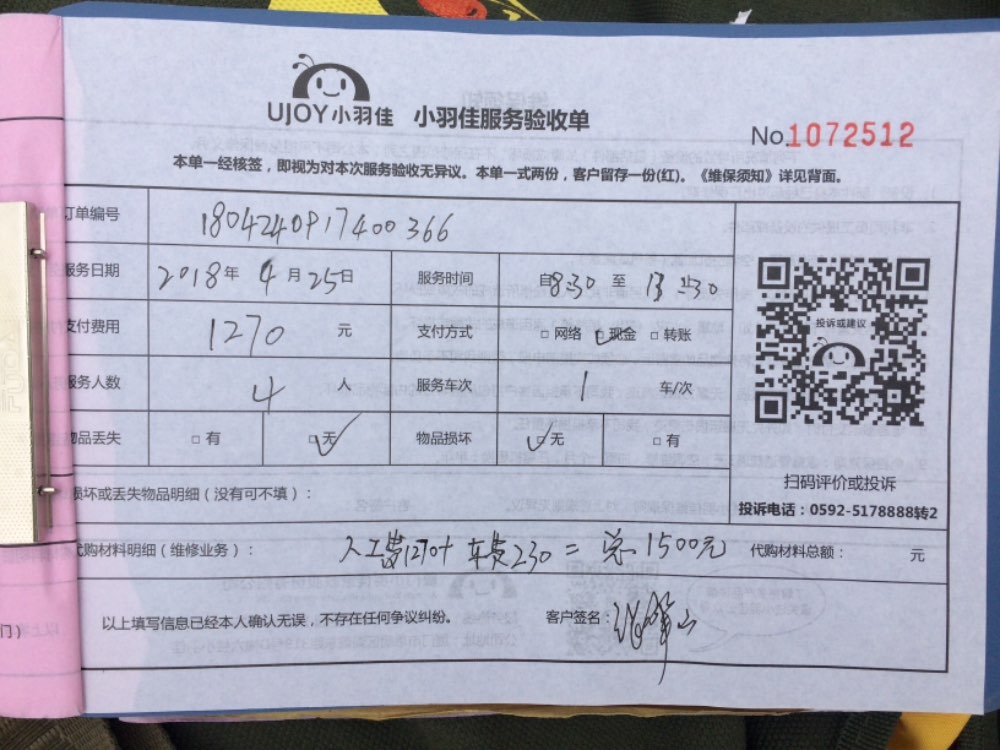 UJOY小羽佳 小羽佳服务验收单
No.1072512
本单一经核签，即视为对本次服务验收无异议。本单一式两份，客户留存一份(红)。《维保须知》详见背面。
订单编号 1804240917400366
服务日期 2018年4月25日 服务时间 自8:30 至 13:30
支付费用 1270 元 支付方式 □网络 □现金 □转账
投诉或建议
服务人数 4 人 服务车次 1 车/次
物品丢失 □有 □无 物品损坏 □无 □有
扫码评价或投诉
损坏或丢失物品明细（没有可不填）：
投诉电话：0592-5178888转2
代购材料明细（维修业务）： 人工费1270+车费230=总1500元 代购材料总额： 元
以上填写信息已经本人确认无误，不存在任何争议纠纷。 客户签名：
门）